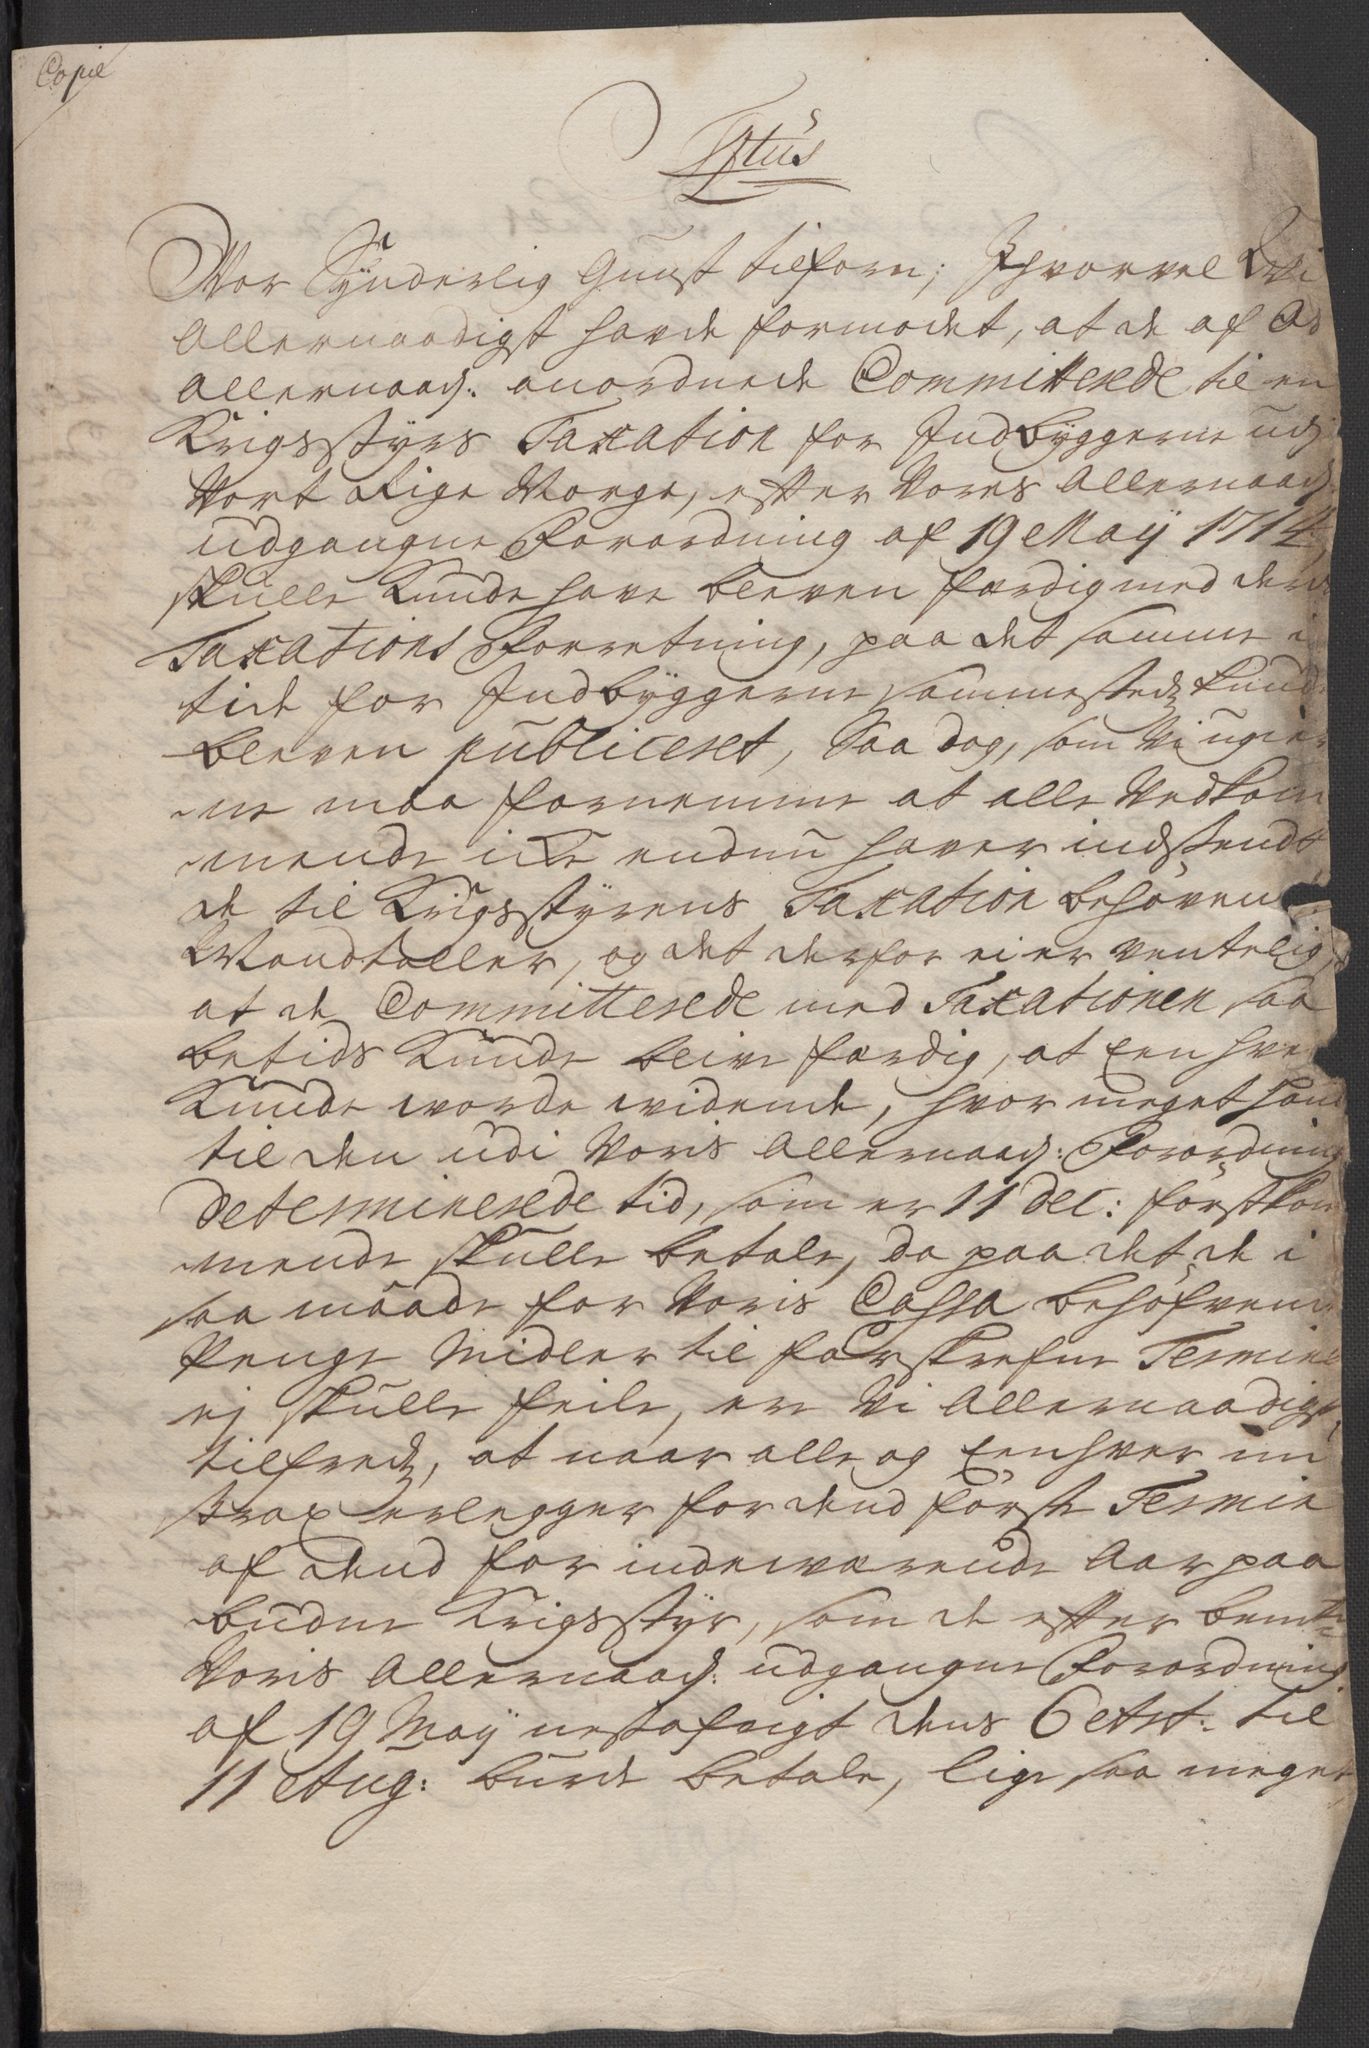 Copie
Titus
Vor Synderlig Gunst tilforn; Ihvorvel Vi
Allernaadigst hafde formodet, at de af Os
Allernaad: anordnede Committerede til en
Krigsstyrs Taxation for Indbyggerne udj
Vort Rige Norge, efter Vores Allernaad:
udgangne Forordning af 19 Maÿ 1714,
skulle kunde have bleven færdig med deris
Taxations Forretning, paa det samme i
tide for Indbyggerne sammestedz kunde
bleven publiceret, Saa dog, som Vi ugier
ne maa fornemme at alle Vedkom
mende icke endnu haver indsendt
de til Krigsstyrens Taxation behövende
Mandtaller, og det derfor ei er ventelig,
at de Committerede med Taxationen saa
betids kunde blive færdig, at Een hver
kunde vorde vidende, hvor meget hand
til den udi Voris Allernaad: Forordning
determinerede tid, som er 11 Dec: förstkom
mende skulle betale, da paa det de i
saa maade for Voris Cassa behöfvende
Penge Midler til forskrefne Termin
ej skulle feile, ere Vi Allernaadigst
tilfreds, at naar alle og Eenhver nu
strax erlegger for dend förste Termin
af dend for indeværende Aar paa
budne Krigsstyr, som de efter bemte
Voris Allernaad: udgangne Forordning
af 19 Maÿ nestafvigt dens 6 Art: til
11 Aug: burde betale, lige saa meget